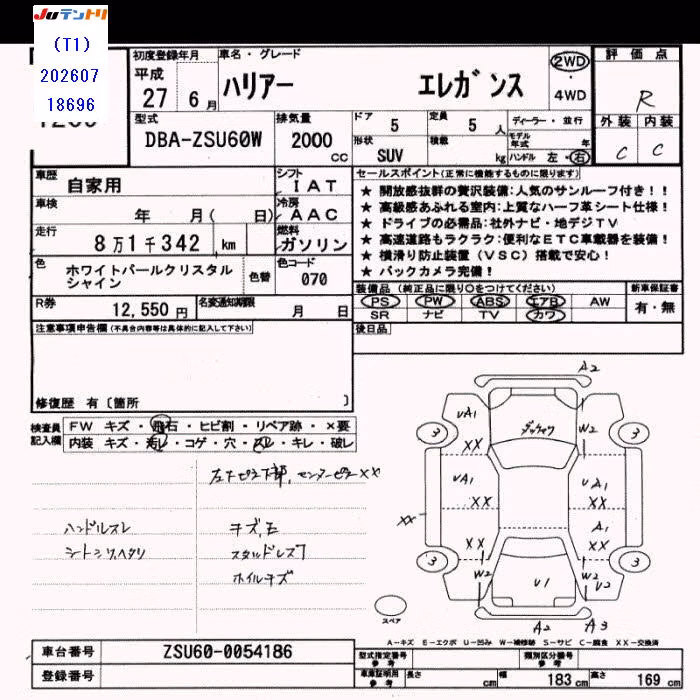 JUテントリ
(T1)
202607
18696
初度登録年月
平成
27 6月
車名・グレード
ハリアー エレガンス
2WD
・
4WD
評価点
R
外装 内装
C C
型式
DBA-ZSU60W
排気量
2000
cc
ドア 5
定員 5 人
形状 SUV
積載 kg
ディーラー・並行
モデル年式 年
ハンドル 左・右
車歴
自家用
シフト
IAT
車検
年 月( 日)
冷房
AAC
走行
8万1千342 km
燃料
ガソリン
色
ホワイトパールクリスタル
シャイン
色替
色コード
070
R券
12,550円
名変通知期限
月 日
セールスポイント(正常に機能するものに限ります)
★ 開放感抜群の贅沢装備:人気のサンルーフ付き!!
★ 高級感あふれる室内:上質なハーフ革シート仕様!
★ ドライブの必需品:社外ナビ・地デジTV
★ 高速道路もラクラク:便利なETC車載器を装備!
★ 横滑り防止装置(VSC)搭載で安心!
★ バックカメラ完備!
装備品(純正品に限り○をつけてください)
新車保証書
PS PW ABS エアB AW
SR ナビ TV カワ
有・無
後日品
注意事項申告欄(不具合内容等は具体的に記入して下さい)
修復歴 有〔箇所 〕
検査員
記入欄
FW キズ・飛石・ヒビ割・リペア跡・×要
内装 キズ・汚レ・コゲ・穴・スレ・キレ・破レ
ハンドルスレ
キズ,E
スタッドレス7
ホイルキズ
A2
UA1
W2
3
3
XX
UA1
XX
UA1
XX
XX
A1
XX
XX
3
3
W2
W2
U2
U1
A2
A3
スペア
A-キズ E-エクボ U-凹み W-補修跡 S-サビ C-腐食 XX-交換済
車台番号
ZSU60-0054186
登録番号
型式指定番号
参考
類別区分番号
参考
車庫証明用
参考
長さ cm
幅 183 cm
高さ 169 cm